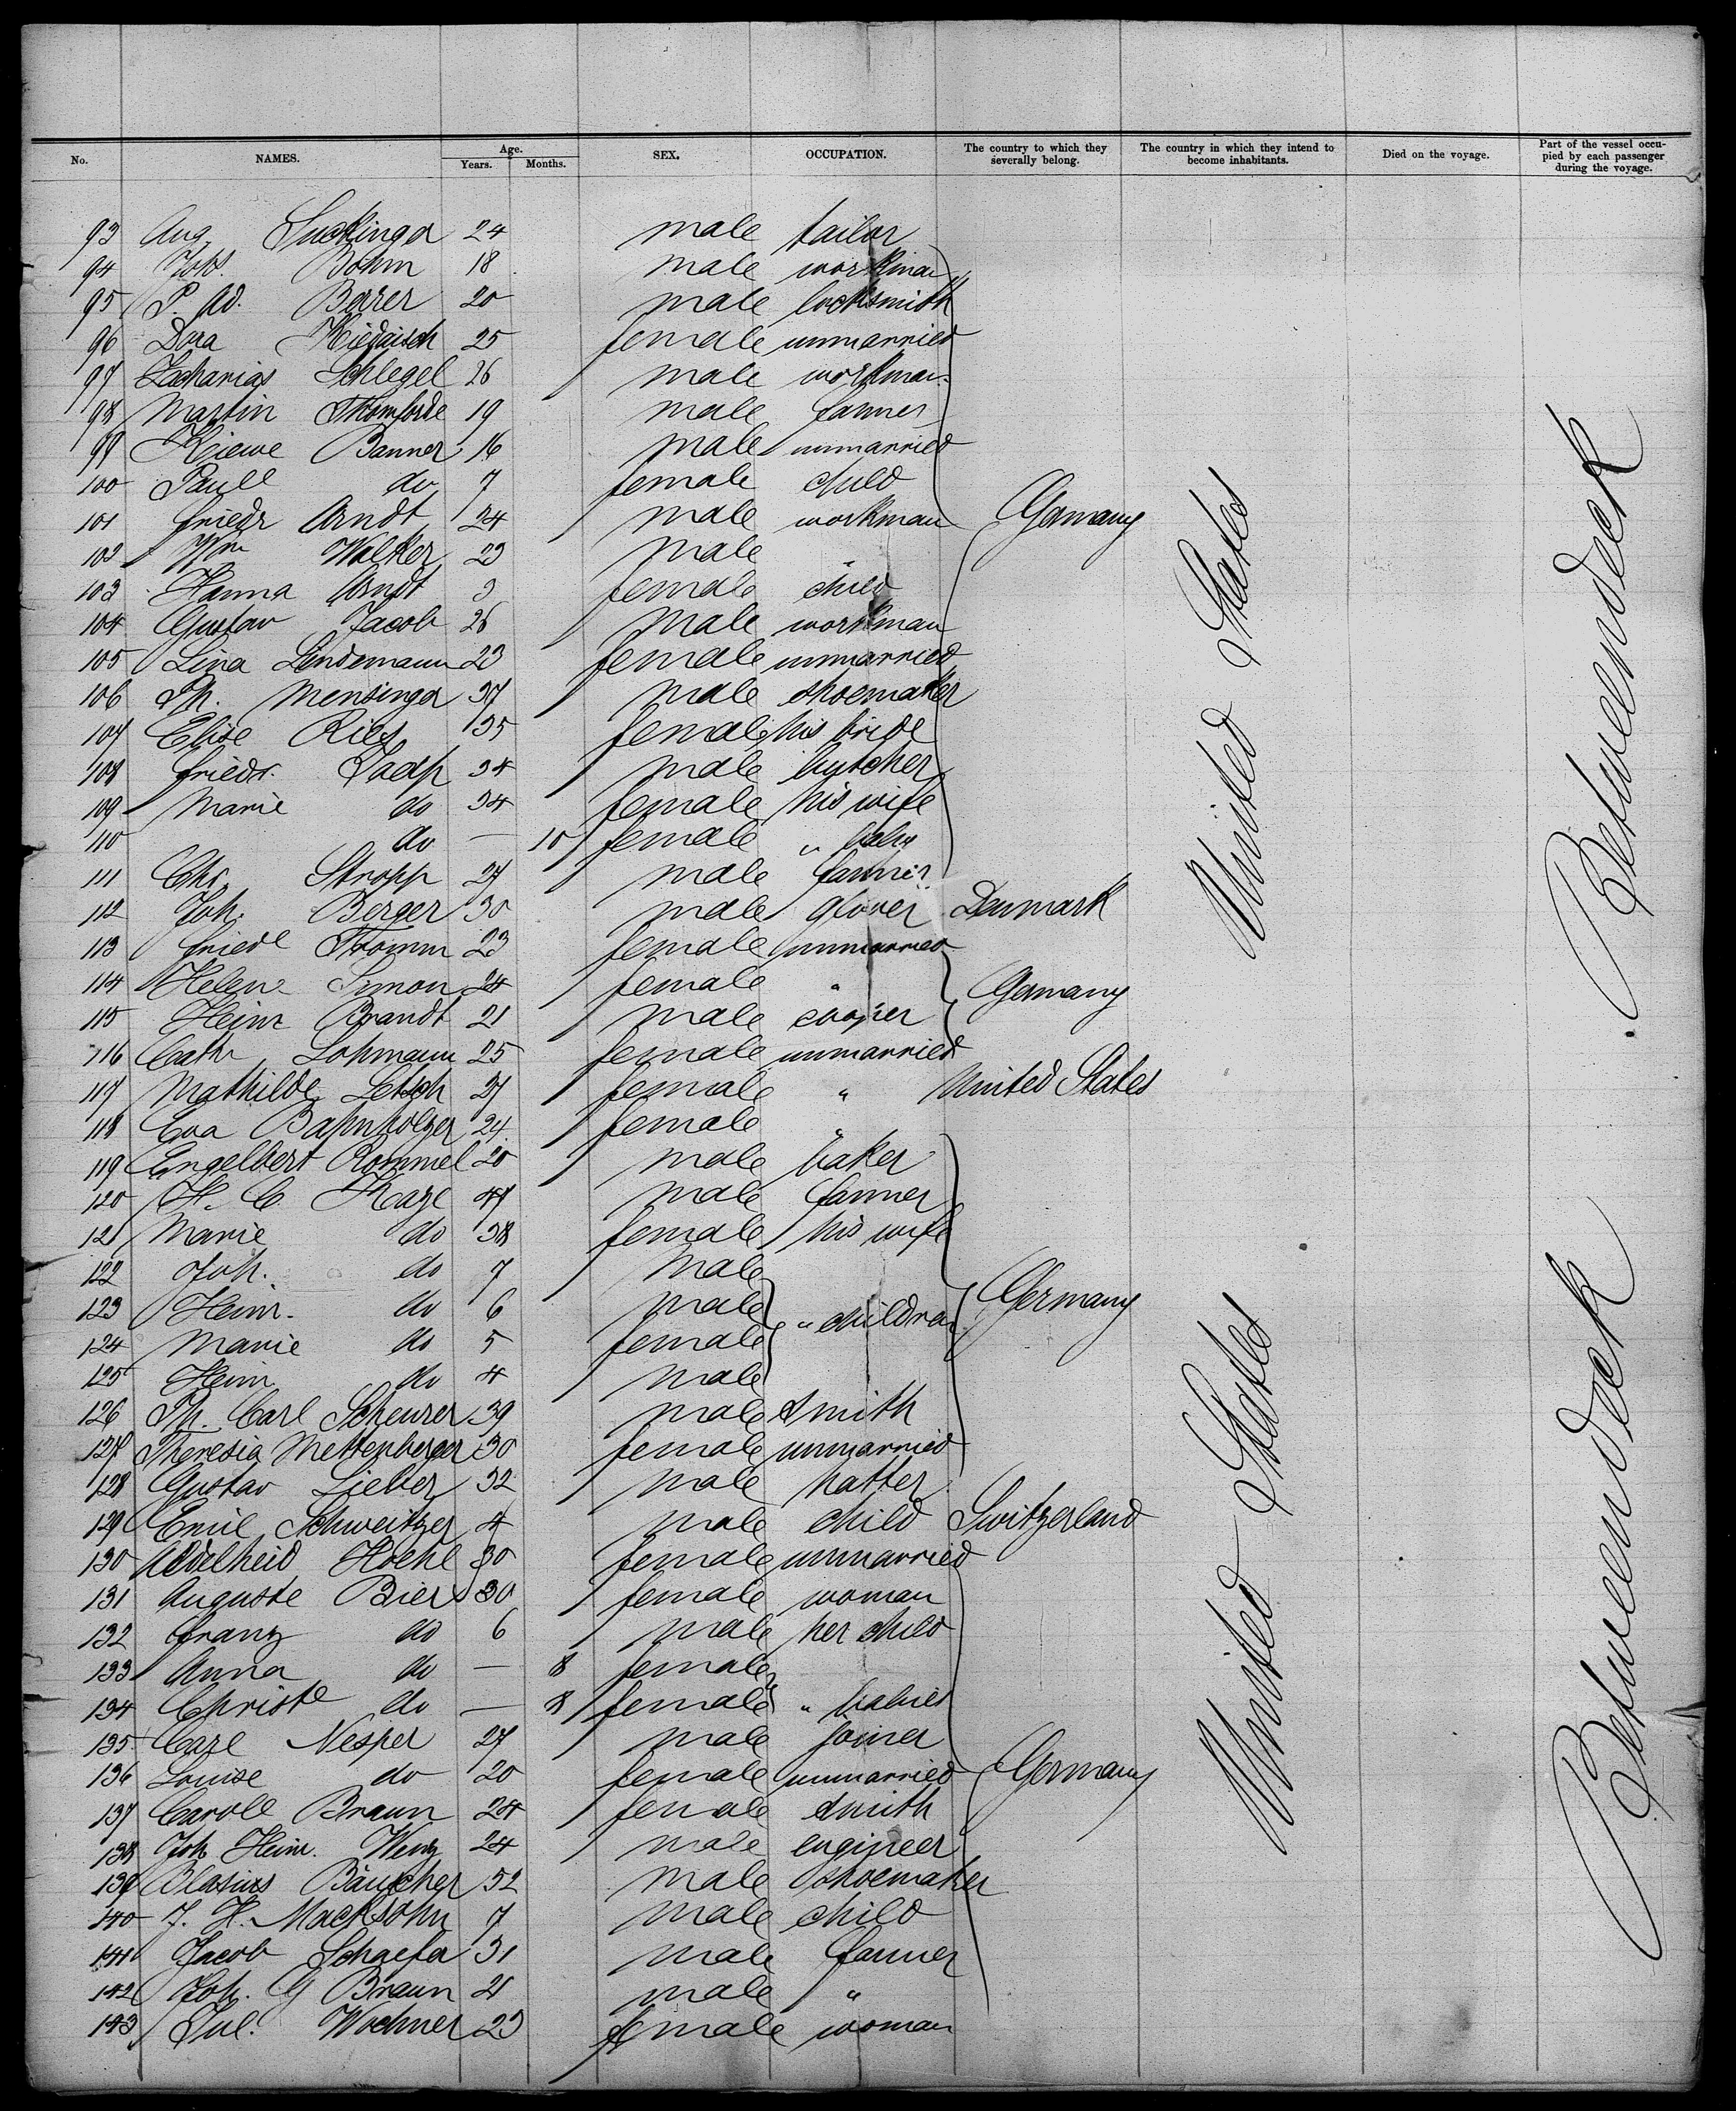 No. NAMES. Age. Years. Months. SEX. OCCUPATION. The country to which they severally belong. The country in which they intend to become inhabitants. Died on the voyage. Part of the vessel occupied by each passenger during the voyage.
93 Aug. 24 male tailor
94 Joh. Böhm 18 male workman
95 P. Ad. Berrer 20 male locksmith
96 Dora 25 female unmarried
97 Zacharias Schlegel 26 male workman
98 Martin Thomforde 19 male farmer
99 Kiewe Banner 16 male unmarried
100 Paull do 7 female child
101 Friedr Arndt 24 male workman Germany
102 Wm Walker 23 male "
103 Hanna Arndt 3 female child
104 Gustav Jacob 26 male workman
105 Lina Lindemann 23 female unmarried
106 Ph. Mensinger 37 male shoemaker
107 Elise Ries 35 female his bride
108 Friedr. 34 male butcher
109 Marie do 34 female his wife
110 do — 10 female " baby
111 Chr. Stropp 27 male farmer
112 Joh. Berger 30 male glover Denmark
113 Friedr Thomm 23 female unmarried
114 Helene Simon 24 female " Germany
115 Heinr Brandt 21 male cooper
116 Cath Lohmann 25 female unmarried
117 Mathilde Letsch 27 female " United States
118 Eva Bahnholzer 24 female "
119 Engelbert Rommel 20 male baker
120 H. C. 47 male farmer
121 Marie do 38 female his wife
122 Joh. do 7 male
123 Heinr. do 6 male " children Germany
124 Marie do 5 female
125 Hein do 4 male
126 Ph. Carl Scheurer 39 male smith
127 Theresia Mettenberger 30 female unmarried
128 Gustav Lieber 32 male hatter
129 Emil Schweitzer 4 male child Switzerland
130 Adelheid Hoehl 30 female unmarried
131 Auguste Biers 30 female woman
132 Franz do 6 male her child
133 Anna do — 8 female
134 Christe do — 8 female " babies
135 Carl Nesper 27 male joiner
136 Louise do 20 female unmarried Germany
137 Caroll Braun 24 female smith
138 Joh Heinr. Wenz 24 male engineer
139 Blasius Bäuscher 52 male shoemaker
140 J. H. Macksohn 7 male child
141 Jacob Schaefer 31 male farmer
142 Joh. G Braun 21 male "
143 Jul. Wochner 23 female woman
United States
United States
Betweendeck
Betweendeck